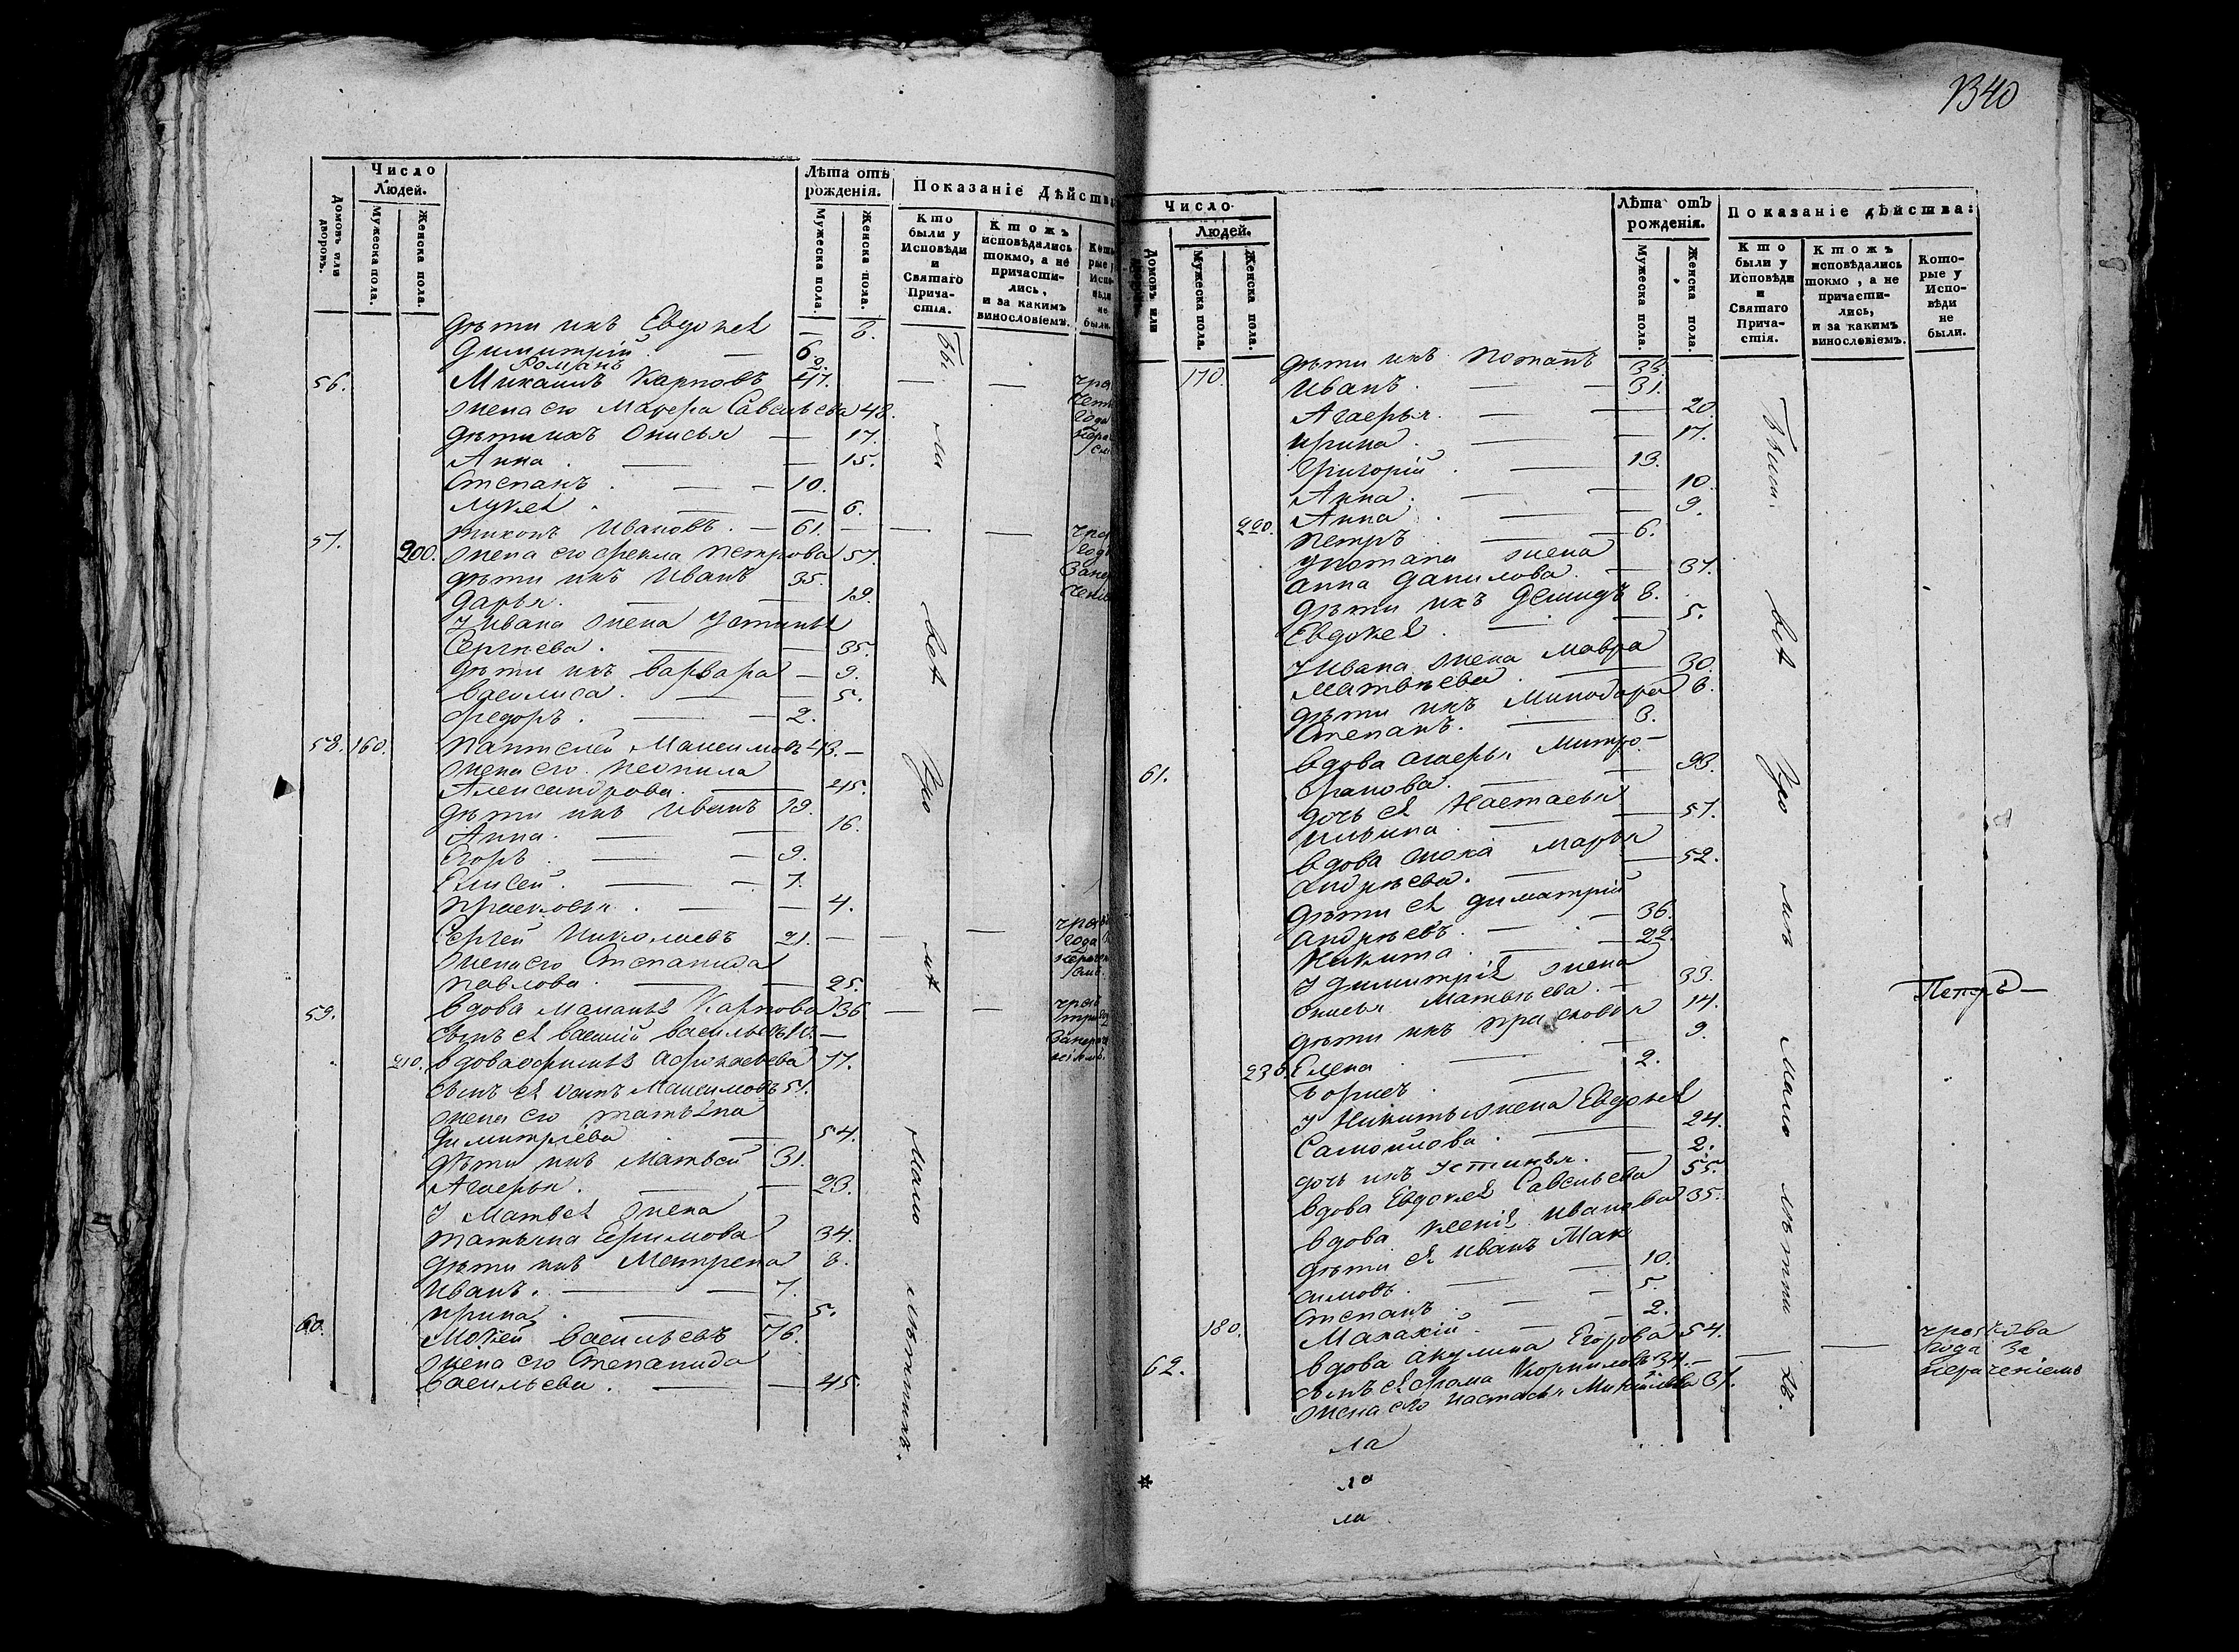 Число
Людей.
Домовъ или дворовъ.
Мужеска пола.
Женска пола.
Лѣта отъ
рожденія.
Мужеска пола.
Женска пола.
Показаніе Дѣйства
Кто
были у
Исповѣди
и
Святаго
Прича-
стія.
Ктожъ
исповѣдались
токмо, а не
причасти-
лись,
и за какимъ
винословіемъ.
дѣти ихъ Евдокея — 8.
Димитрій — 6.
Романъ 2.
56. Михаилъ Карповъ 47. — —
жена его Марѳра Савельева 48.
дѣти ихъ Анисья — 17.
Анна — — 15.
Степанъ — — 10.
Лукея — — 6.
57. Тихонъ Ивановъ — 61. — — —
200. жена его Фекла Петрова 57.
дѣти ихъ Иванъ 35.
Дарья — — 19.
У Ивана жена Устинья
Сергѣева — — 35.
дѣти ихъ Варвара — 9.
Василиса — — 5.
Федоръ — — 2.
58. 160. Пантелей Максимовъ 43. —
жена его Неонила
Александрова — 45.
дѣти ихъ Иванъ 19.
Анна — — 16.
Егоръ — — 9.
Елисей — — 7.
Прасковья — — 4.
Сергей Николаевъ 21. — — —
жена его Степанида
Павлова — — 25.
59. вдова Маланья Карпова 36 — —
сынъ ея Василій Васильевъ 10. —
210. вдова Афимья Афонасьева 77.
сынъ ея Осипъ Максимовъ 57.
жена его Татьяна
Димитріева — 54.
дѣти ихъ Матвей 31.
Агаѳья — — 23.
У Матвея жена
Татьяна Ефимова 34.
дѣти ихъ Матрена 8.
Иванъ — — 7.
Ирина — — 5.
60. Мокей Васильевъ 76.
жена его Степанида
Васильева — — 45.
Бы
ли
вся
Ухо
мя
Мало
лѣтнихъ.
1340
Число
Людей.
Домовъ или
Мужеска пола.
Женска пола.
Лѣта отъ
рожденія.
Мужеска пола.
Женска пола.
Показаніе дѣйства:
Кто
были у
Исповѣди
и
Святаго
Прича-
стія.
Ктожъ
исповѣдались
токмо, а не
причасти-
лись,
и за какимъ
винословіемъ.
Кото-
рые у
Испо-
вѣди
не
были.
дѣти ихъ Потапъ 33.
170. Иванъ — — 31.
Агаѳья — — 20.
Ирина — — 17.
Григорій — 13.
Анна — — 10.
Анна — — 9.
220. Петръ — — 6.
У Потапа жена
Анна Данилова — 37.
дѣти ихъ Демидъ 8.
Евдокея — — 5.
У Ивана жена Мавра
Матвѣева — 30.
дѣти ихъ Минодора 6.
Степанъ — 3.
61. вдова Агаѳья Митро-
фанова — — 93.
дочь ея Настасья
Ильина — — 57.
вдова Марья
Андрѣева — — 52.
дѣти ея Димитрій
Андрѣевъ — — 36.
Никита — — 22.
У Димитрія жена
Матвѣева — 33.
дѣти ихъ Прасковья 14.
230. Елена — — 9.
Борисъ — 2.
У Никиты жена Евдокея
Самойлова — 24.
дочь ихъ Устинья — 2.
вдова Евдокея Савельева 55.
вдова Ксенія Иванова 35.
дѣти ея Иванъ Мак
симовъ — — 10.
Степанъ — — 5.
180. Макакій — — 2.
вдова Акулина Егорова 54.
62. сынъ ея Фома Корниловъ 34. — — —
жена его Настасья Михайлова 37.
Были
вся
Ухо
мъ
Мало
лѣтни
хъ.
Петръ —
года за
нераченіемъ
ла
ла
ла